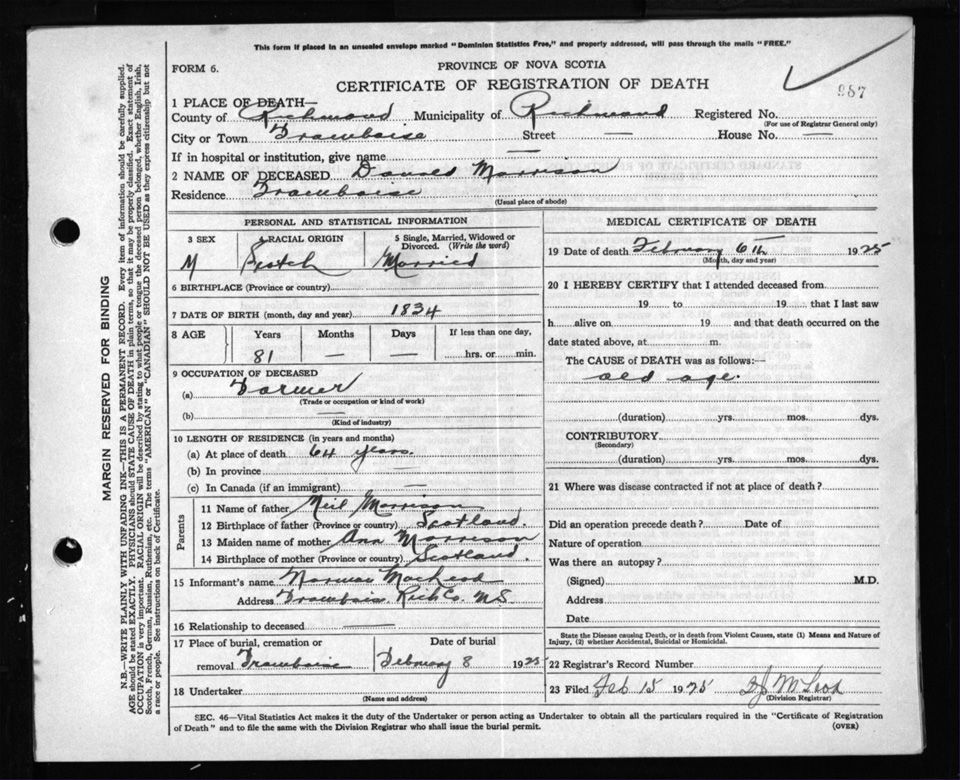 This form if placed in an unsealed envelope marked "Dominion Statistics Free," and properly addressed, will pass through the mails "FREE."
FORM 6.
PROVINCE OF NOVA SCOTIA
CERTIFICATE OF REGISTRATION OF DEATH
987
1 PLACE OF DEATH—
County of Richmond Municipality of Richmond Registered No.
(For use of Registrar General only)
City or Town Framboise Street — House No. —
If in hospital or institution, give name —
2 NAME OF DECEASED Donald Morrison
Residence Framboise
(Usual place of abode)
PERSONAL AND STATISTICAL INFORMATION
3 SEX 4 RACIAL ORIGIN 5 Single, Married, Widowed or Divorced. (Write the word)
M Scotch Married
6 BIRTHPLACE (Province or country)
7 DATE OF BIRTH (month, day and year) 1834
8 AGE Years Months Days If less than one day,
81 — — hrs. or min.
9 OCCUPATION OF DECEASED
(a) Farmer
(Trade or occupation or kind of work)
(b) —
(Kind of industry)
10 LENGTH OF RESIDENCE (in years and months)
(a) At place of death 64 years.
(b) In province —
(c) In Canada (if an immigrant) —
Parents
11 Name of father Neil Morrison
12 Birthplace of father (Province or country) Scotland.
13 Maiden name of mother Ann Morrison
14 Birthplace of mother (Province or country) Scotland.
15 Informant's name Norman MacLeod
Address Framboise Rich Co. N.S.
16 Relationship to deceased —
17 Place of burial, cremation or removal Framboise
Date of burial
February 8 1925
18 Undertaker
(Name and address)
MEDICAL CERTIFICATE OF DEATH
19 Date of death February 6th 1925
(Month, day and year)
20 I HEREBY CERTIFY that I attended deceased from
19 to 19 that I last saw
h alive on 19 and that death occurred on the
date stated above, at m.
The CAUSE of DEATH was as follows:—
old age.
(duration) yrs. mos. dys.
CONTRIBUTORY
(Secondary)
(duration) yrs. mos. dys.
21 Where was disease contracted if not at place of death?
Did an operation precede death? Date of
Nature of operation
Was there an autopsy?
(Signed) M.D.
Address
Date
State the Disease causing Death, or in death from Violent Causes, state (1) Means and Nature of Injury, (2) whether Accidental, Suicidal or Homicidal.
22 Registrar's Record Number
23 Filed Feb 15 1925 McLeod
(Division Registrar)
SEC. 46—Vital Statistics Act makes it the duty of the Undertaker or person acting as Undertaker to obtain all the particulars required in the "Certificate of Registration
of Death" and to file the same with the Division Registrar who shall issue the burial permit.
(OVER)
MARGIN RESERVED FOR BINDING
N.B.—WRITE PLAINLY WITH UNFADING INK—THIS IS A PERMANENT RECORD. Every item of information should be carefully supplied.
AGE should be stated EXACTLY. PHYSICIANS should STATE CAUSE OF DEATH in plain terms, so that it may be properly classified. Exact statement of
OCCUPATION is very important. RACIAL ORIGIN will be described by stating to what people or tongue the deceased person belonged, whether English, Irish,
Scotch, French, German, Russian, Ruthenian, etc. The terms "AMERICAN" or "CANADIAN" SHOULD NOT BE USED as they express citizenship but not
a race or people. See instructions on back of Certificate.